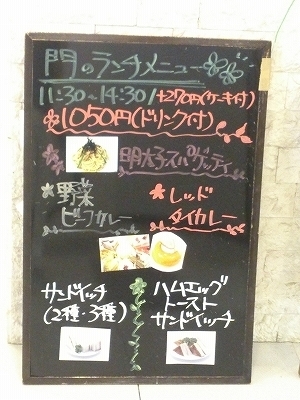 門のランチメニュー
11:30~14:30/+270円(ケーキ付)
1050円(ドリンク付)
明太子スパゲッティ
野菜
ビーフカレー
レッド
タイカレー
サンドイッチ
(2種・3種)
ハムエッグ
トースト
サンドイッチ